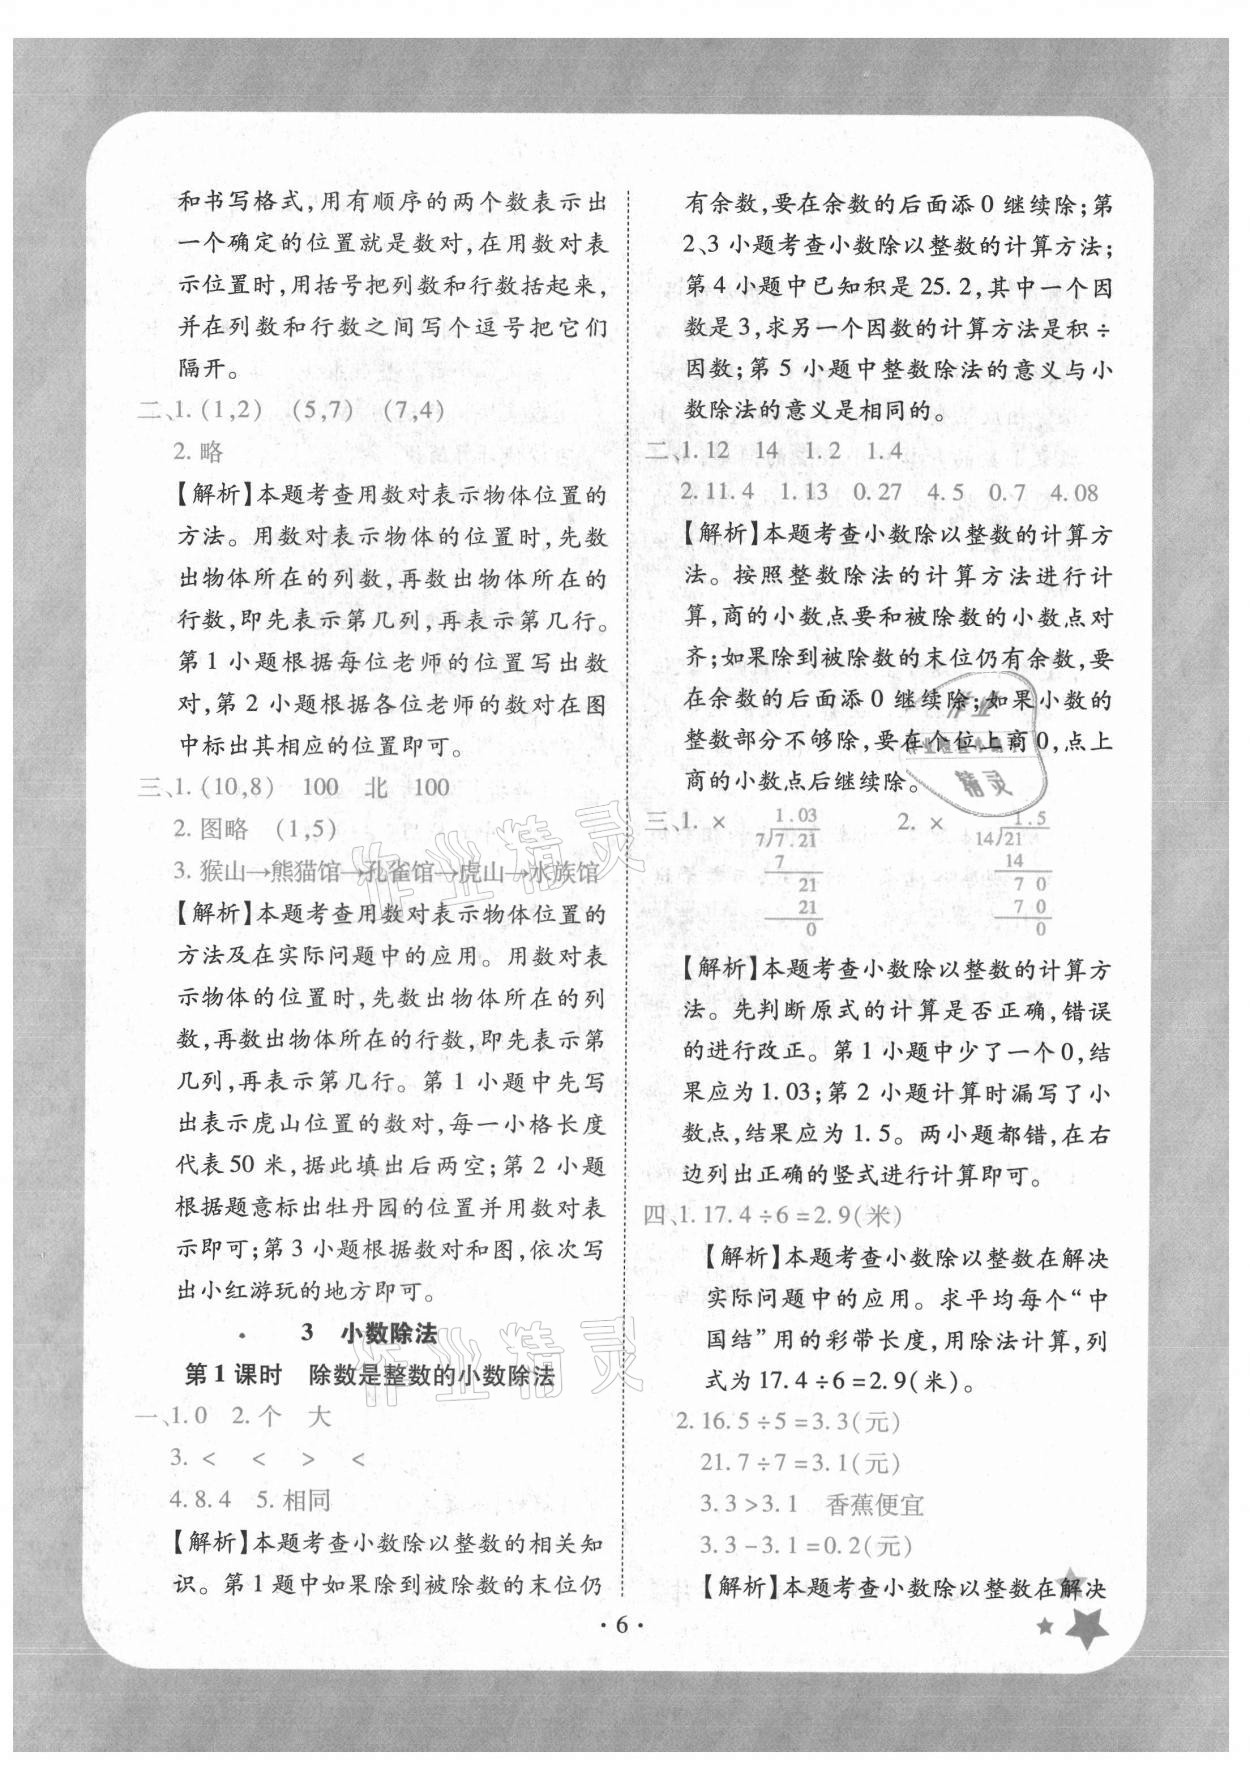 和书写格式,用有顺序的两个数表示出
一个确定的位置就是数对,在用数对表
示位置时,用括号把列数和行数括起来,
并在列数和行数之间写个逗号把它们
隔开。
二、1.(1,2) (5,7) (7,4)
2.略
【解析】本题考查用数对表示物体位置的
方法。用数对表示物体的位置时,先数
出物体所在的列数,再数出物体所在的
行数,即先表示第几列,再表示第几行。
第1小题根据每位老师的位置写出数
对,第2小题根据各位老师的数对在图
中标出其相应的位置即可。
三、1.(10,8) 100 北 100
2.图略 (1,5)
3.猴山→熊猫馆→孔雀馆→虎山→水族馆
【解析】本题考查用数对表示物体位置的
方法及在实际问题中的应用。用数对表
示物体的位置时,先数出物体所在的列
数,再数出物体所在的行数,即先表示第
几列,再表示第几行。第1小题中先写
出表示虎山位置的数对,每一小格长度
代表50米,据此填出后两空;第2小题
根据题意标出牡丹园的位置并用数对表
示即可;第3小题根据数对和图,依次写
出小红游玩的地方即可。
3 小数除法
第1课时 除数是整数的小数除法
一、1.0 2.个 大
3.< < > <
4.8.4 5.相同
【解析】本题考查小数除以整数的相关知
识。第1题中如果除到被除数的末位仍
有余数,要在余数的后面添0继续除;第
2、3小题考查小数除以整数的计算方法;
第4小题中已知积是25.2,其中一个因
数是3,求另一个因数的计算方法是积÷
因数;第5小题中整数除法的意义与小
数除法的意义是相同的。
二、1.12 14 1.2 1.4
2.11.4 1.13 0.27 4.5 0.7 4.08
【解析】本题考查小数除以整数的计算方
法。按照整数除法的计算方法进行计
算,商的小数点要和被除数的小数点对
齐;如果除到被除数的末位仍有余数,要
在余数的后面添0继续除;如果小数的
整数部分不够除,要在个位上商0,点上
商的小数点后继续除。
三、1. × 1.03 2. × 1.5
7/7.21 14/21
7 14
21 7 0
21 7 0
0 0
【解析】本题考查小数除以整数的计算方
法。先判断原式的计算是否正确,错误
的进行改正。第1小题中少了一个0,结
果应为1.03;第2小题计算时漏写了小
数点,结果应为1.5。两小题都错,在右
边列出正确的竖式进行计算即可。
四、1.17.4÷6=2.9(米)
【解析】本题考查小数除以整数在解决
实际问题中的应用。求平均每个“中
国结”用的彩带长度,用除法计算,列
式为17.4÷6=2.9(米)。
2.16.5÷5=3.3(元)
21.7÷7=3.1(元)
3.3>3.1 香蕉便宜
3.3-3.1=0.2(元)
【解析】本题考查小数除以整数在解决
·6·
作业精灵
作业精灵
作业
精灵